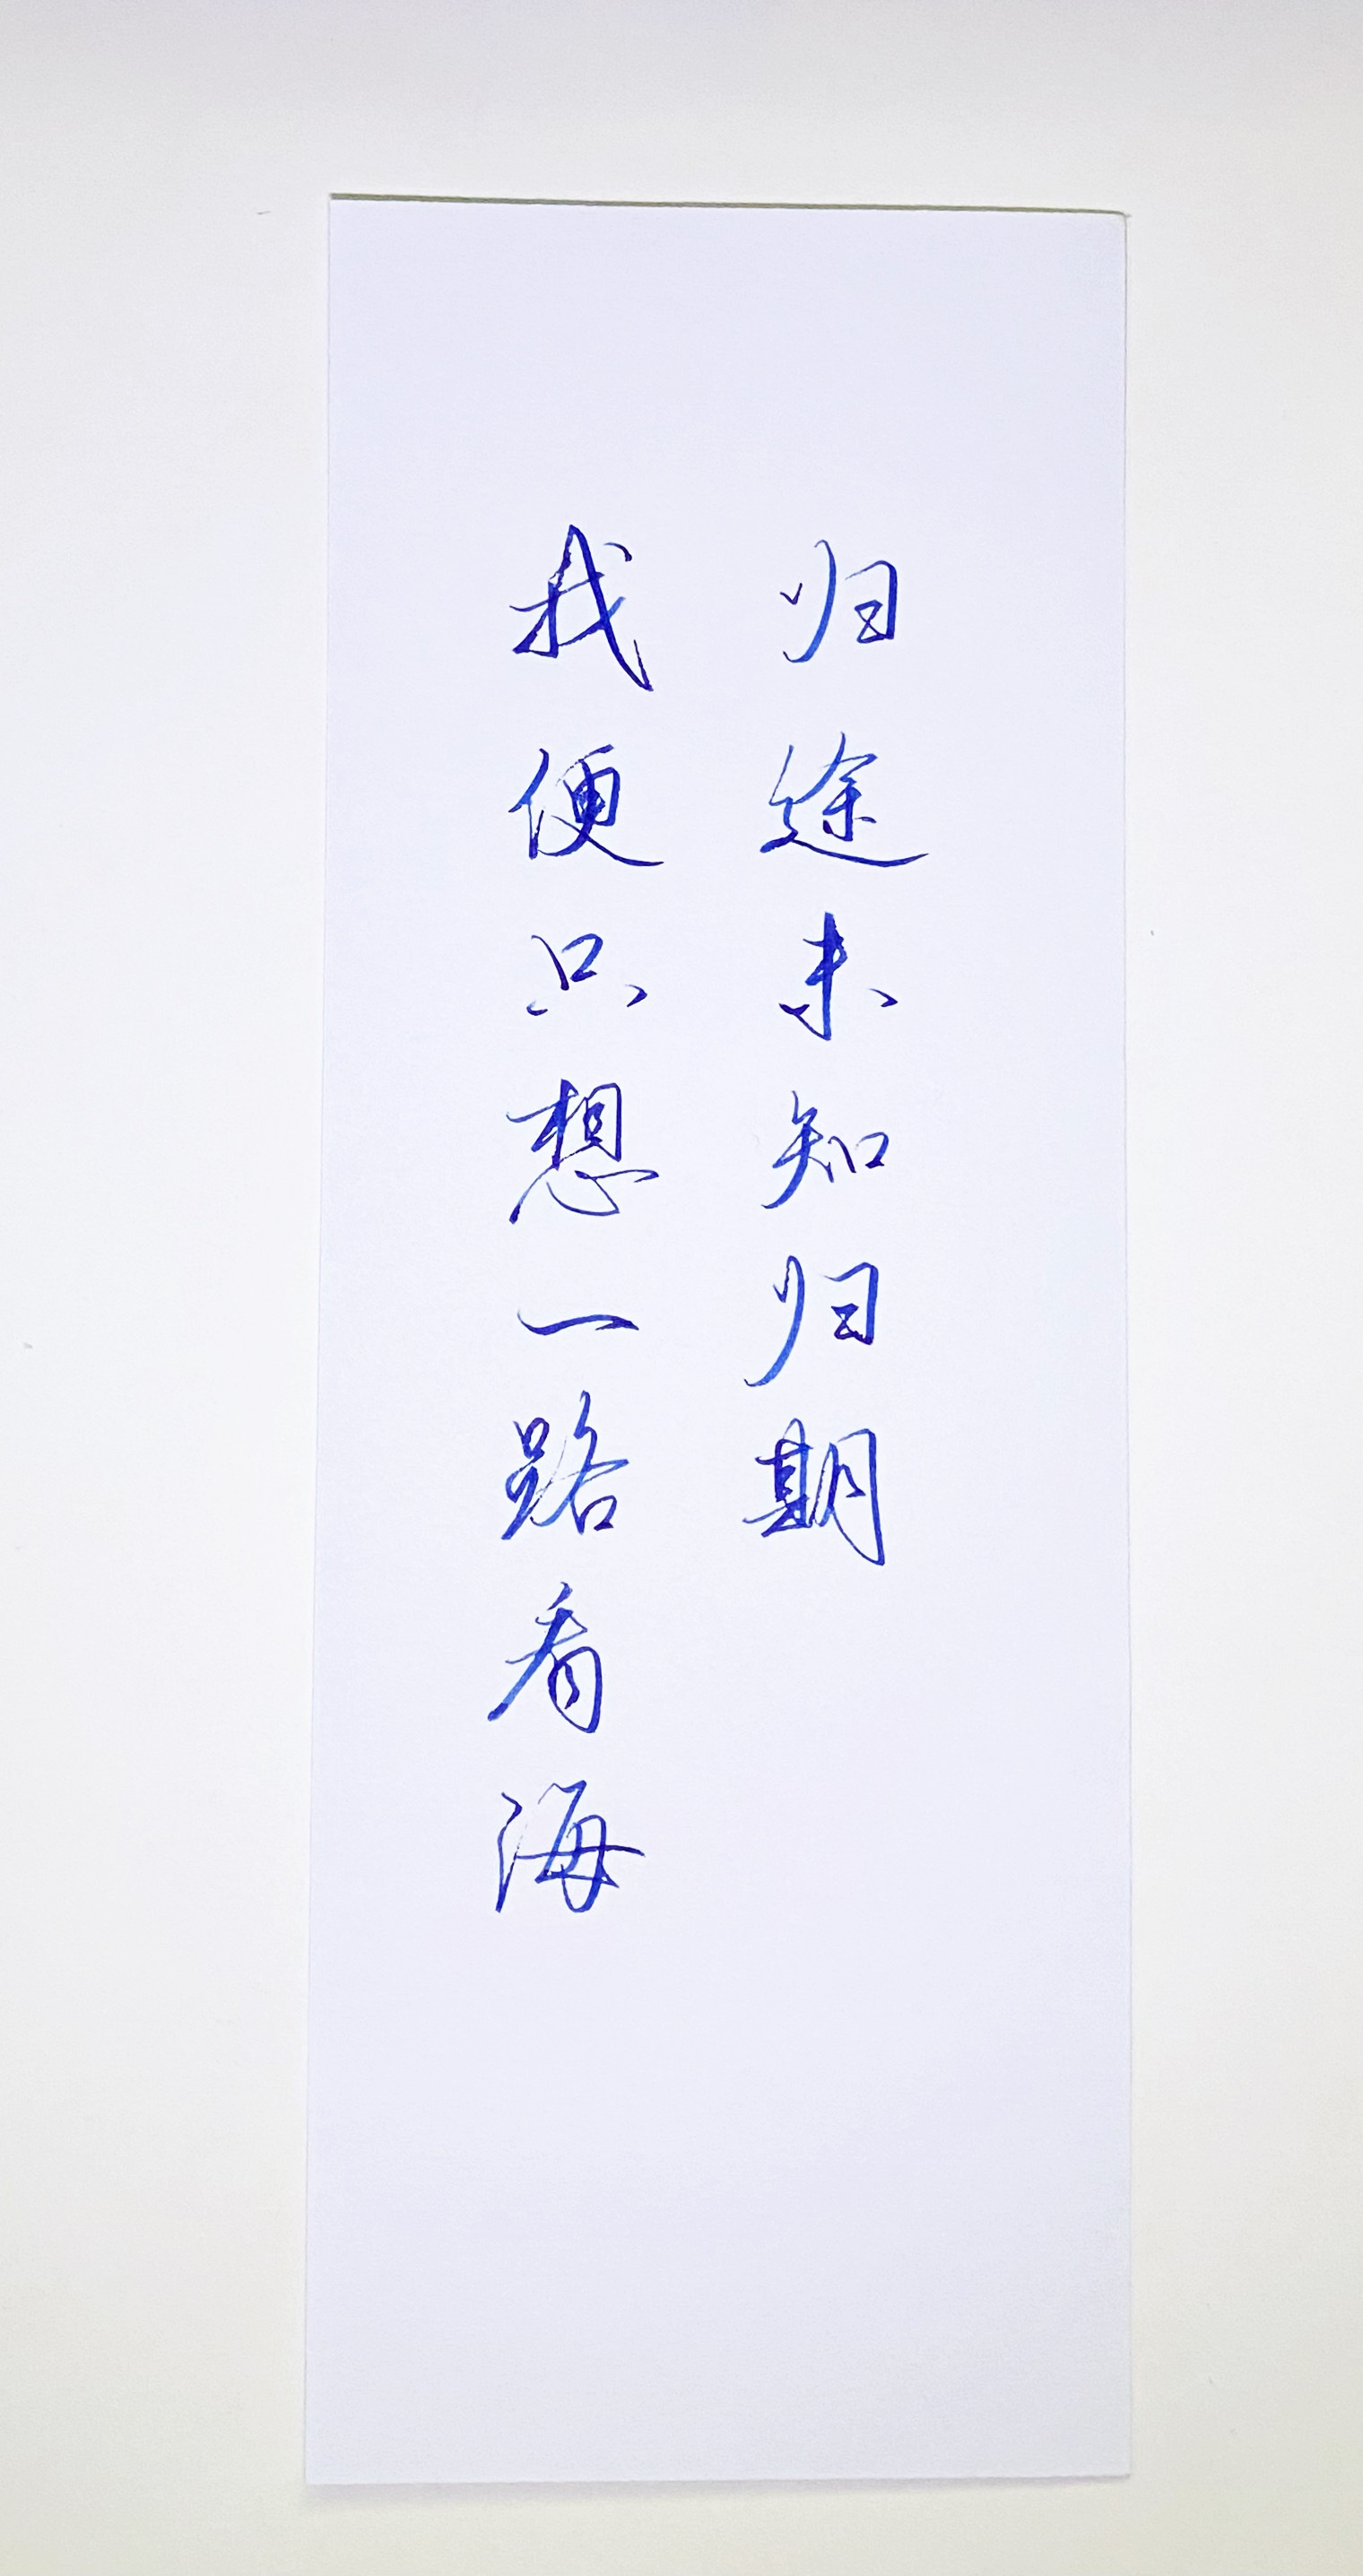 归途未知归期
我便只想一路看海